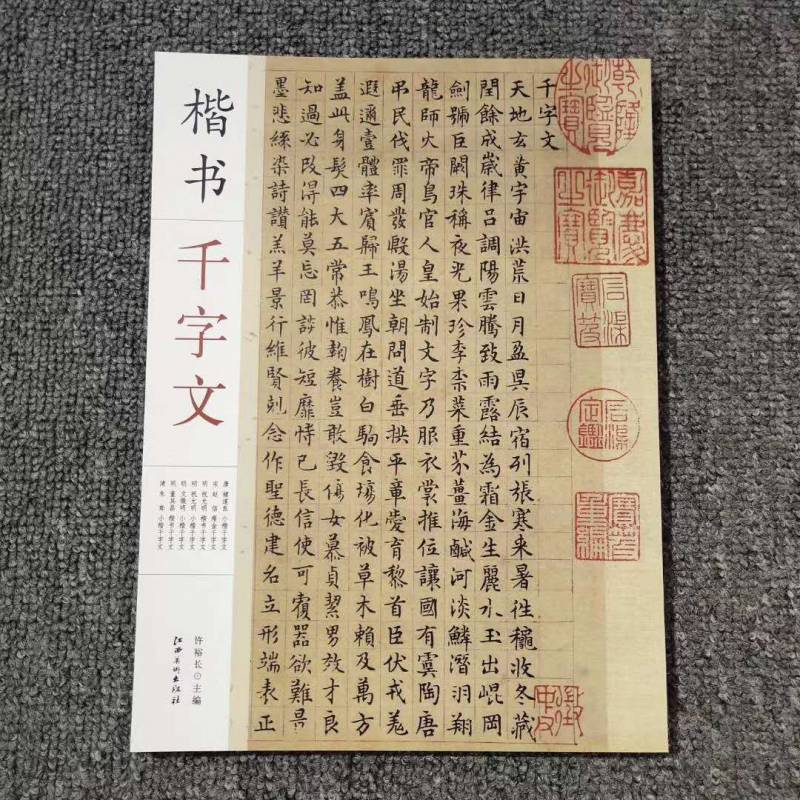 楷书
千字文
唐 褚遂良 小楷千字文
宋 赵佶 瘦金千字文
明 祝允明 楷书千字文
明 祝允明 小楷千字文
明 文徵明 小楷千字文
明 董其昌 楷书千字文
清 小楷千字文
许裕长⊙主编
江西美术出版社
千字文
天地玄黃宇宙洪荒日月盈昃辰宿列張寒来暑往穐收冬藏
閏餘成嵗律吕調陽雲騰致雨露結為霜金生麗水玉出崐岡
劍號巨闕珠稱夜光果珍李柰菜重芥薑海鹹河淡鱗潛羽翔
龍師火帝鳥官人皇始制文字乃服衣裳推位讓國有虞陶唐
弔民伐罪周發殷湯坐朝問道垂拱平章愛育黎首臣伏戎羌
遐邇壹體率賓歸王鳴鳳在樹白駒食場化被草木賴及萬方
盖此身髮四大五常恭惟鞠養豈敢毀傷女慕貞絜男效才良
知過必改得能莫忘罔談彼短靡恃己長信使可覆器欲難量
墨悲絲染詩讚羔羊景行維賢剋念作聖德建名立形端表正
乾隆御覽之寶
嘉慶御覽之寶